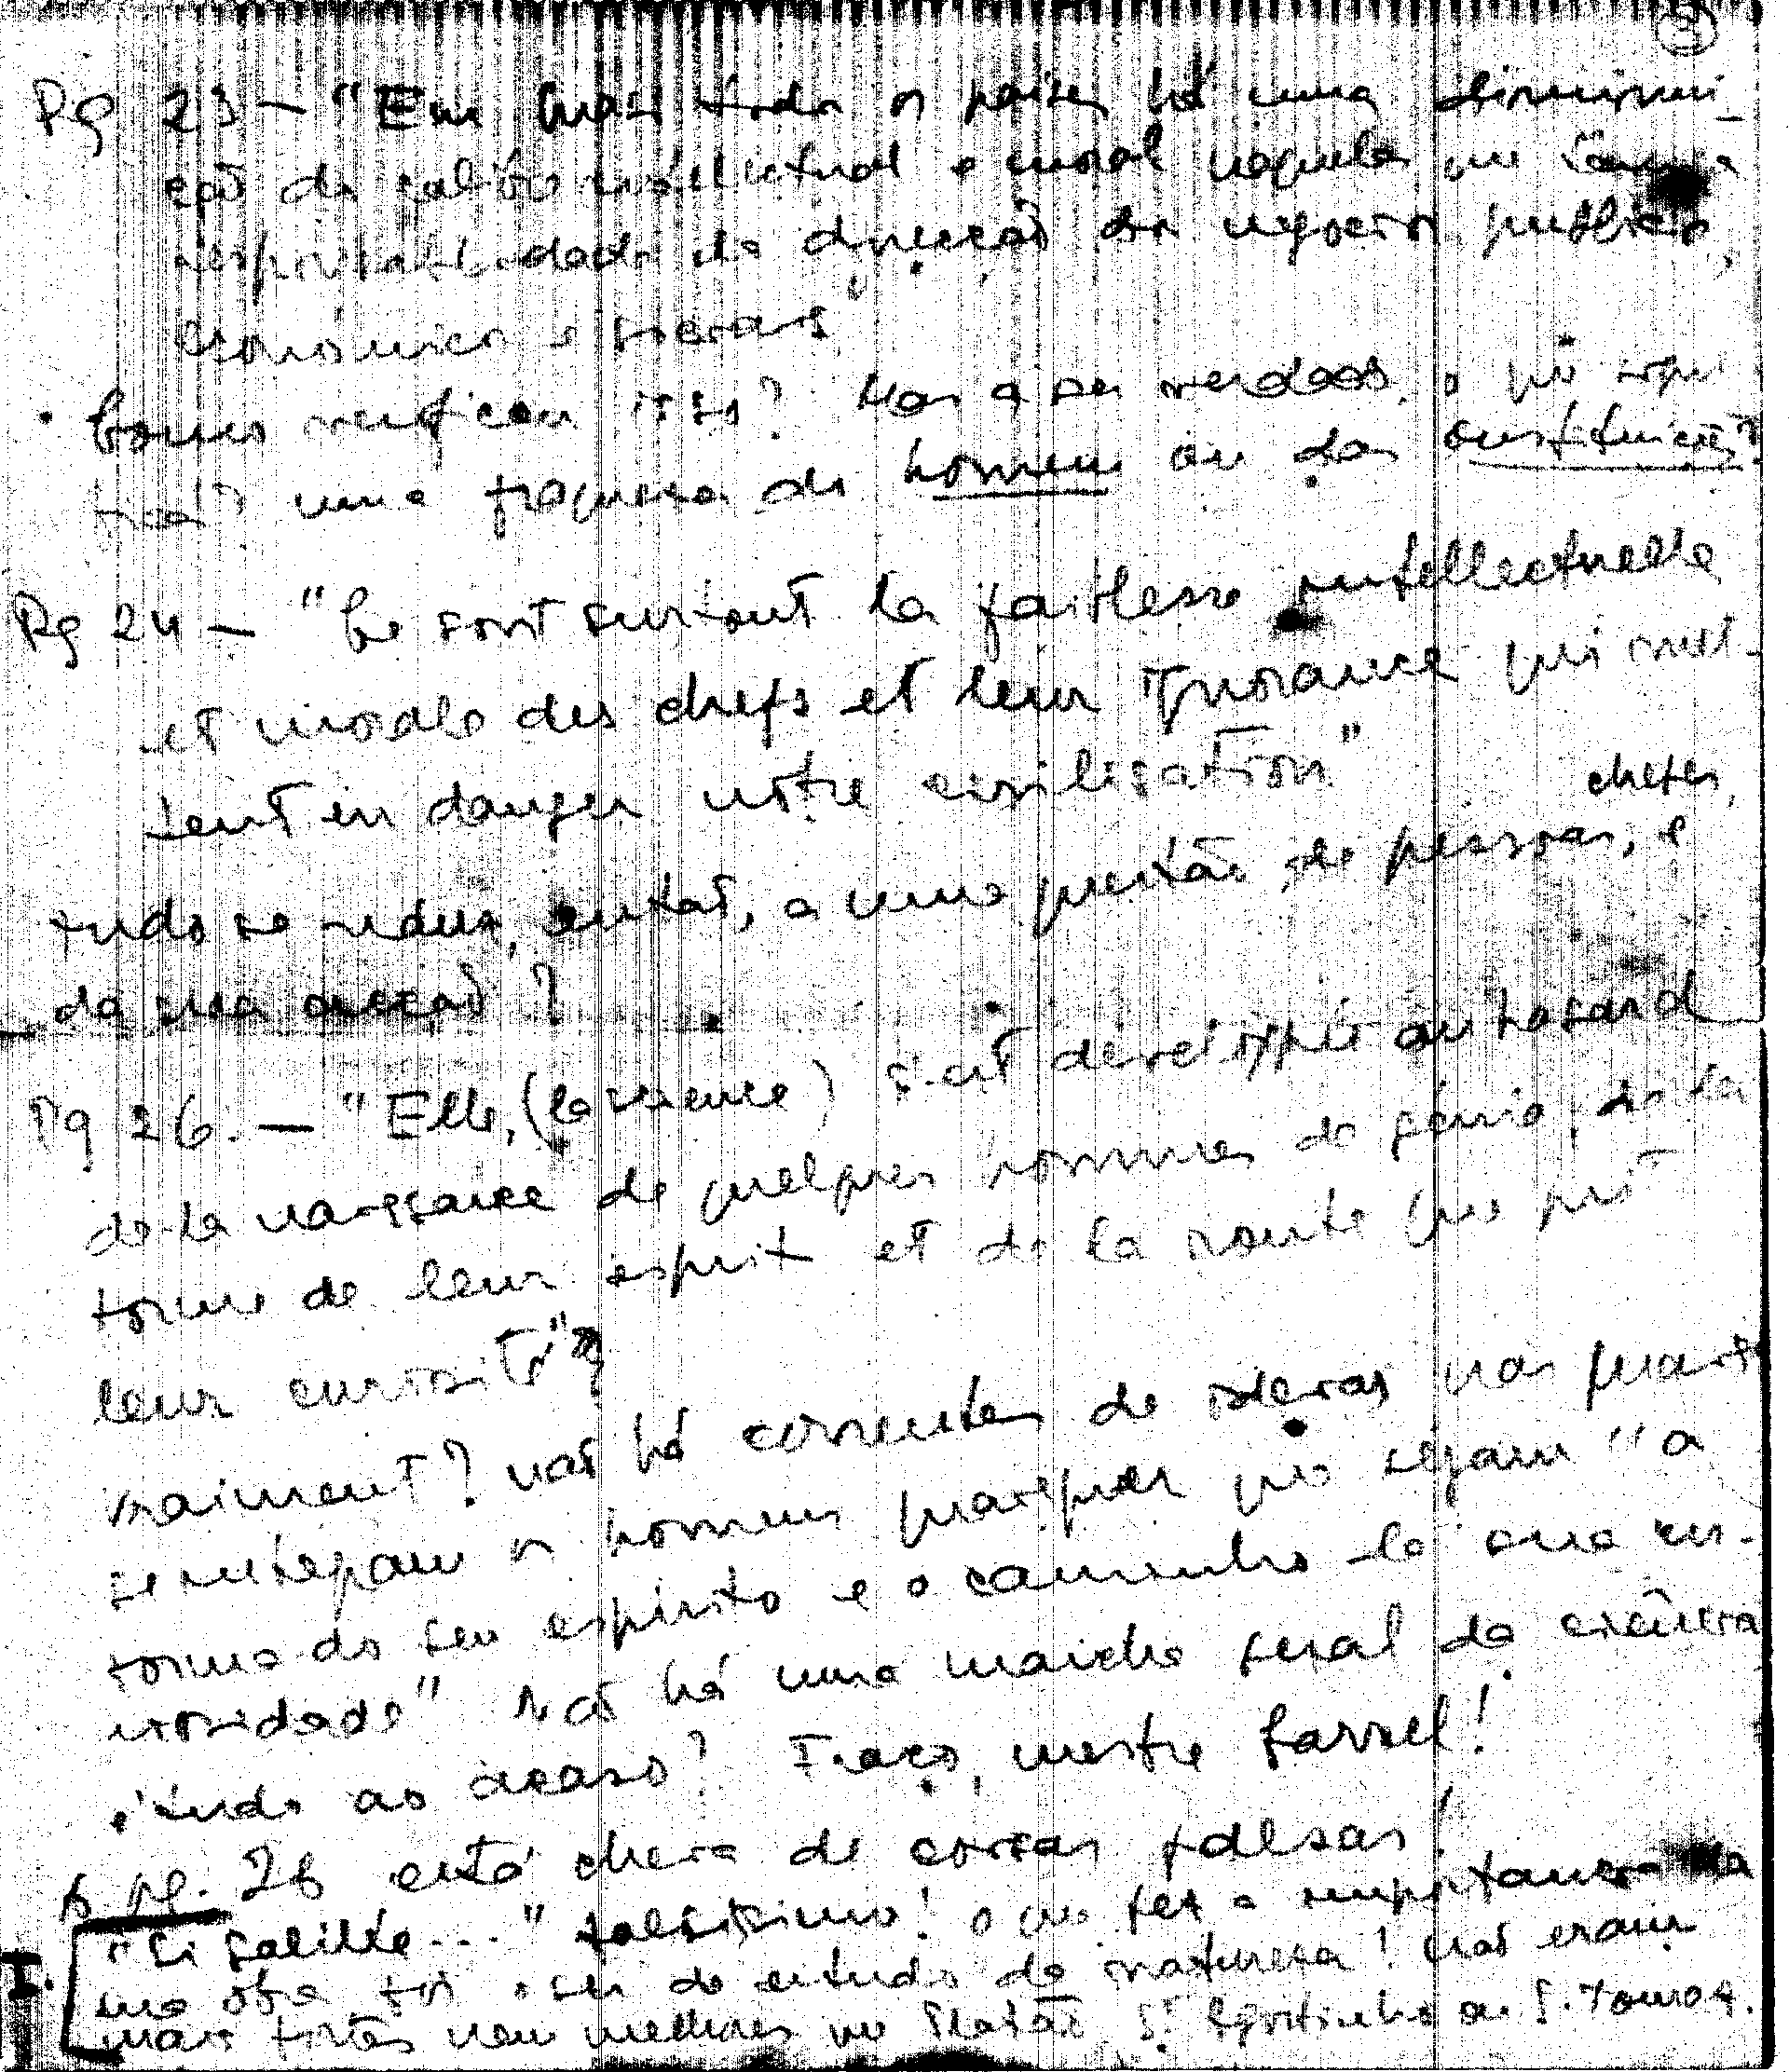 ③
Pg 23 — "Em quasi todos os países há uma diminui-
ção do calibre intelectual e moral naqueles que têm a
responsabilidade da direcção dos negocios publicos,
económicos e sociaes"
Como verificou isso? Mas a ser verdade, o que signi-
uma fraqueza dos homens ou das instituições?
Pg 24 — "Ce sont surtout la faiblesse intellectuelle
et morale des chefs et leur ignorance qui met-
tent en danger notre civilisation"
chefes,
tudo se reduz, entao, a uma questão de pessoas, e
da sua acção?
Pg 26. — "Elle, (la science) s'est développée au hasard
de la naissance de quelques hommes de génie, de la
forme de leur esprit et de la route que prit
leur curiosité"?
vraiment? não há correntes de ideias nas quais
se integram os homens quaisquer que sejam "a
forma do seu espirito e o caminho da sua cu-
riosidade" Não há uma marcha geral da ciência
é tudo ao acaso? Fraco, mestre Carrel!
A pg. 26 está cheia de coisas falsas!
"Si Galilée..." falsissimo! o que fez a importancia da
sua obra foi o ser do estudo da natureza! não eram
mais fortes nem melhores que Platão S.to Agostinho ou S. Tomas.